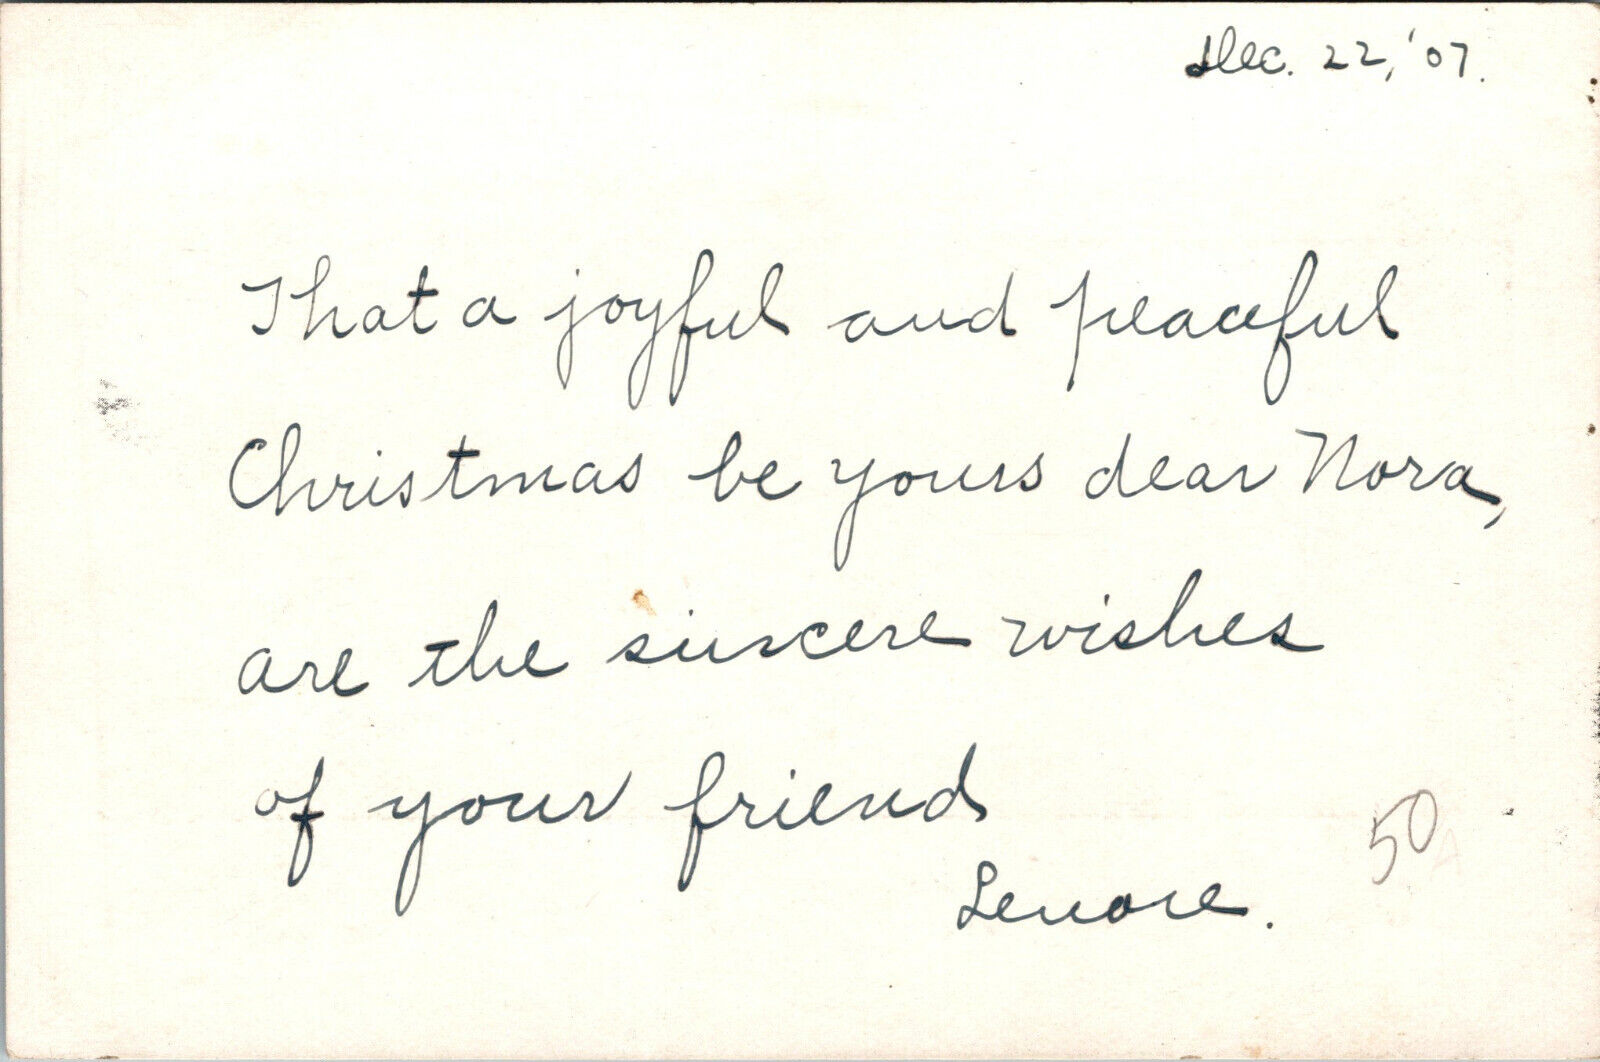 Dec. 22, '07.
That a joyful and peaceful
Christmas be yours dear Nora,
are the sincere wishes
of your friend
Lenore.
50